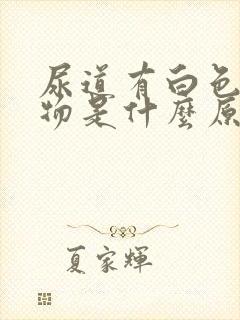 尿道有白色
物是什麼原
夏家輝